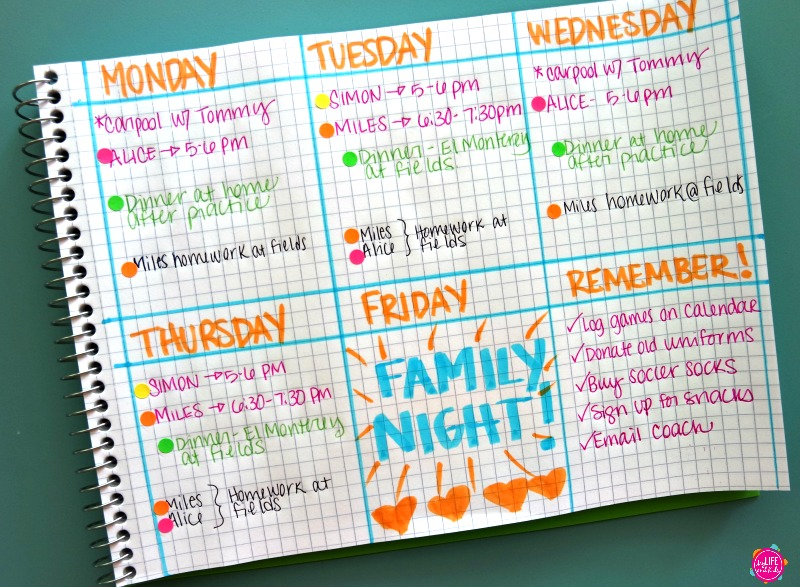 MONDAY
*carpool w/ Tommy
ALICE → 5-6 pm
Dinner at home
after practice
Miles homework at fields
TUESDAY
SIMON → 5-6 pm
MILES → 6:30-7:30pm
Dinner - El Monterey
at fields
Miles } Homework at
Alice } fields
WEDNESDAY
*carpool w/ Tommy
ALICE - 5-6 pm
Dinner at home
after practice
Miles homework @ fields
THURSDAY
SIMON → 5-6 pm
MILES → 6:30-7:30 pm
Dinner - El Monterey
at fields
Miles } Homework at
Alice } fields
FRIDAY
FAMILY
NIGHT!
REMEMBER!
✓Log games on calendar
✓Donate old uniforms
✓Buy soccer socks
✓Sign up for snacks
✓Email coach
LIFE